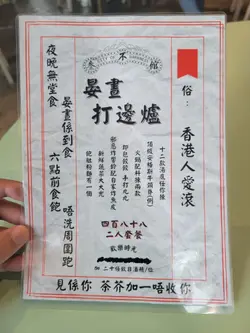 晏晝
打邊爐
俗:
香港人愛滾
十二款湯底任你揀
火鍋配料揀兩款
新鮮蔬菜大大兜
四百八十八
二人套餐
歡樂時光
夜晚無堂食
晏晝係到食
六點前食飽
唔洗周圍跑
見係你 茶芥加一唔收你